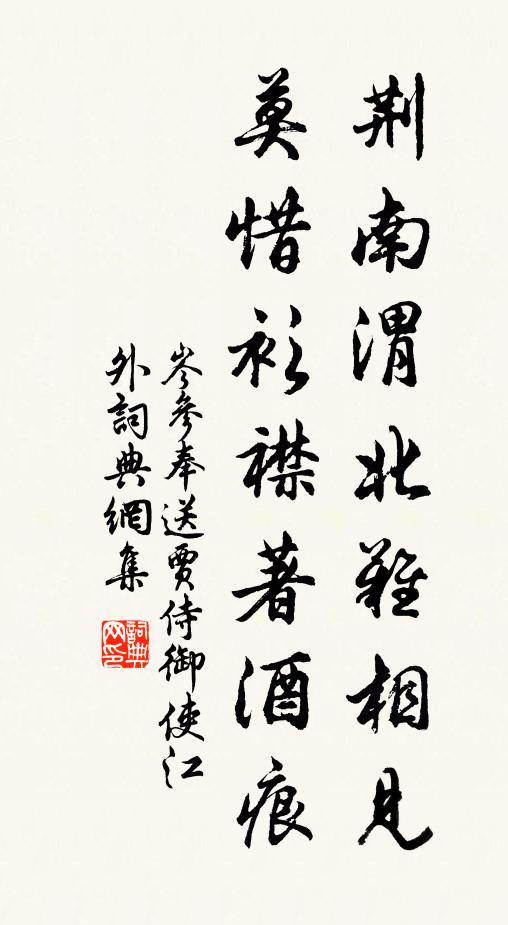 荆南渭北難相見
莫惜衫襟著酒痕
岑參奉送賈侍御使江
外詞典網集
詞典
网印